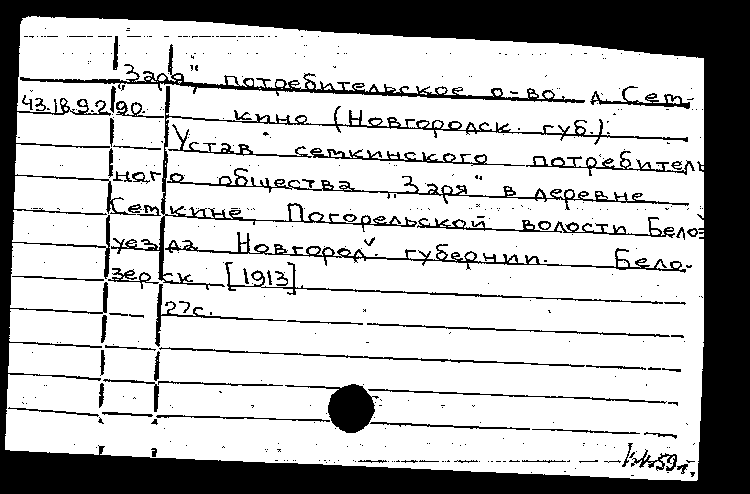 „Заря", потребительское о-во. д. Сет-
43.18.9.290.
кино (Новгородск. губ.).
Устав сеткинского потребитель
ного общества „Заря" в деревне
Сеткине, Погорельской волости Белоз
уезда Новгород. губернии. Бело-
зерск, [1913].
27с.